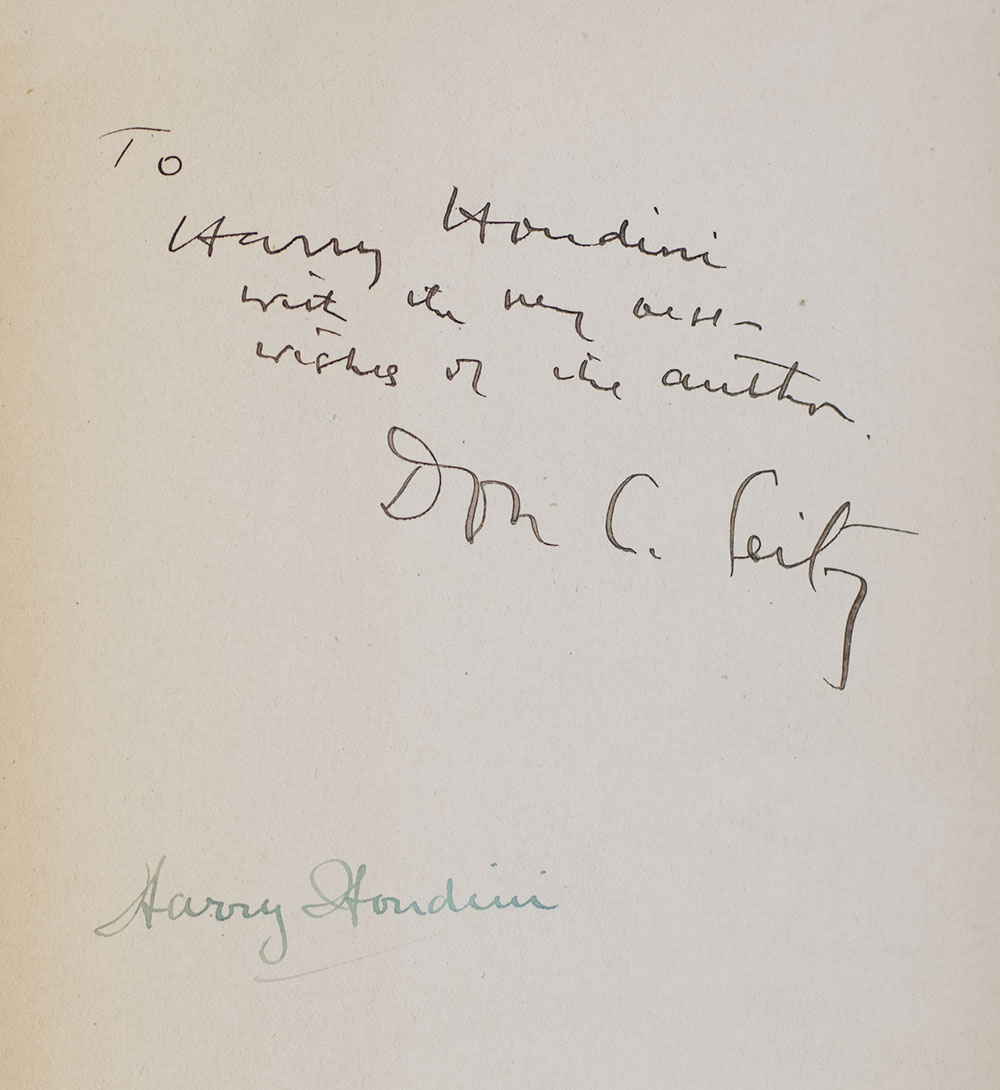 To
Harry Houdini
with the very best
wishes of the author.
Don C. Seitz
Harry Houdini